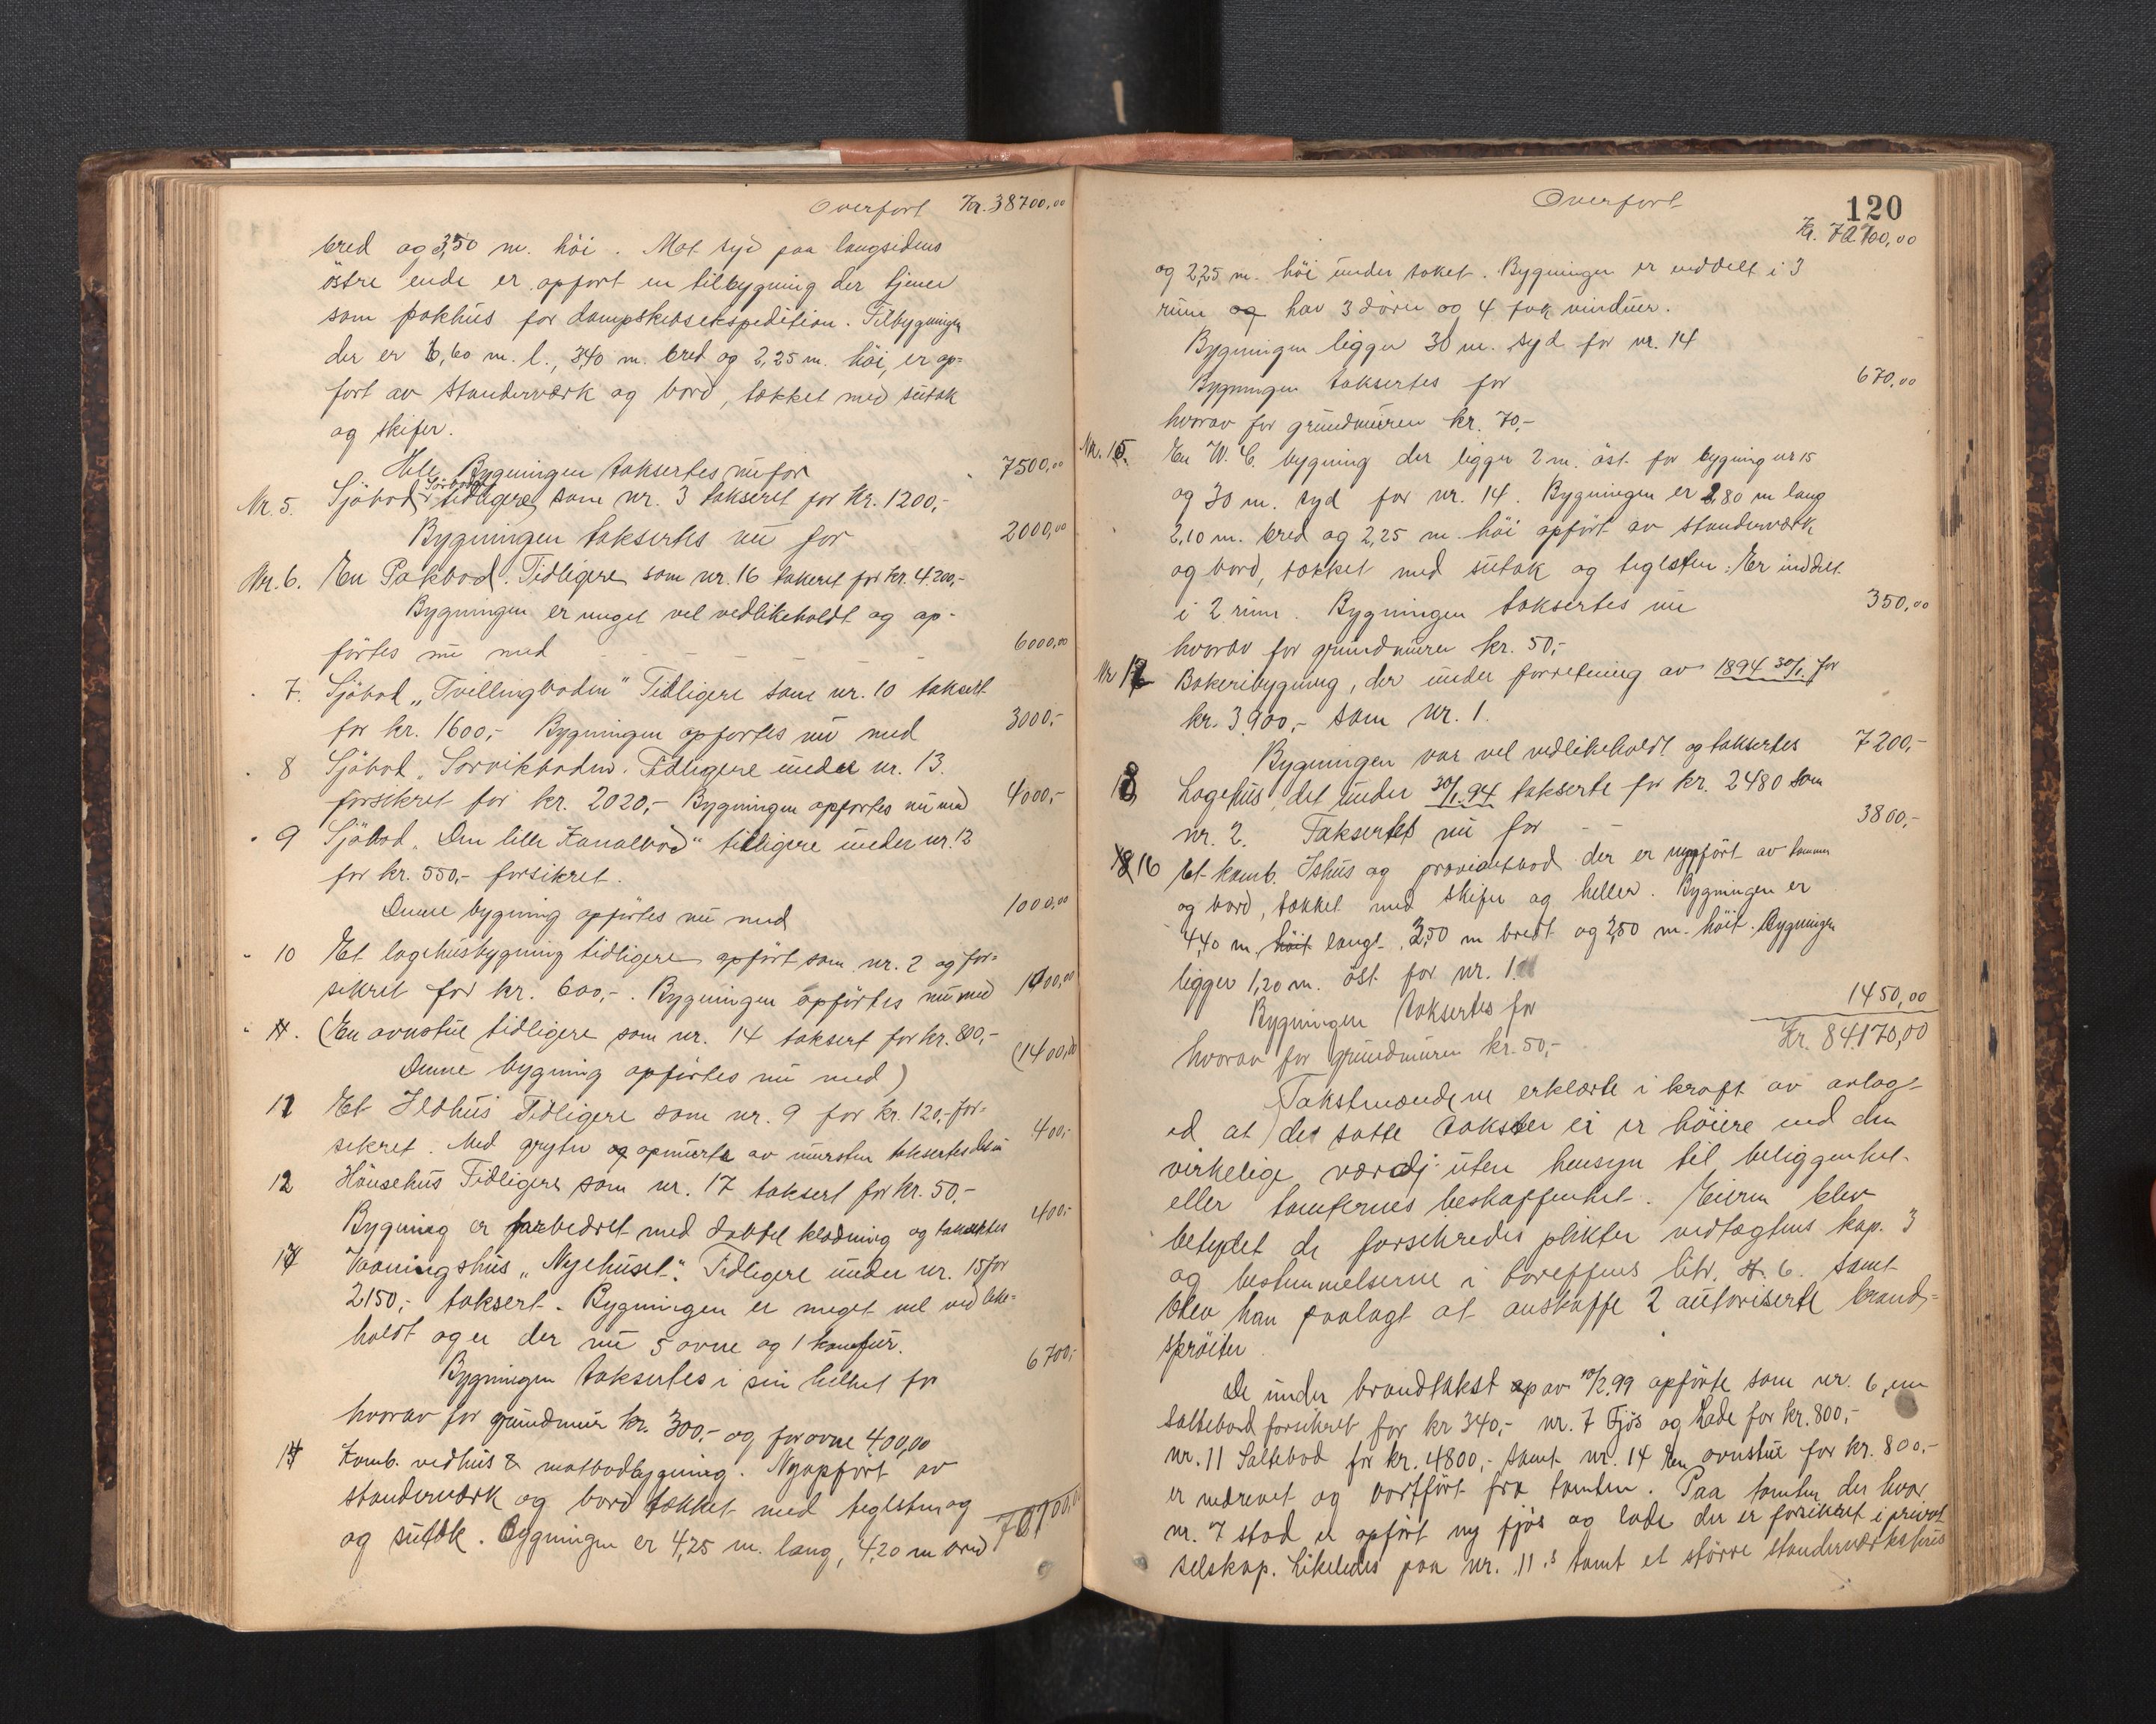 Overført Kr. 38700,00
bred og 3,50 m. höi. Mot syd paa langsidens
östre ende er opfört en tilbygning der tjener
som pakhus for dampskibsekspedition. Tilbygningen
der er 6,60 m. l., 3,40 m. bred og 2,25 m. höi, er op=
fört av standerværk og bord, tækket med sutak
og skifer.
Hele Bygningen taksertes nu for 7500,00
Nr. 5. Sjöbod tidligere som nr. 3 taksert for kr. 1200,-
Bygningen taksertes nu for 2000,00
Nr. 6. En Pakbod. Tidligere som nr. 16 taksert for kr. 4200,-
Bygningen er meget vel vedlikeholdt og op-
förtes nu med 6000,00
7. Sjöbod „Tvillingboden" Tidligere som nr. 10 taksert
for kr. 1600,- Bygningen opförtes nu med 3000,-
8 Sjöbod „Sørvikboden. Tidligere under nr. 13.
forsikret for kr. 2020,- Bygningen opförtes nu med 4000,-
9 Sjöbod „Den lille Kanalbod" tidligere under nr. 12
for kr. 550,- forsikret.
Denne bygning opförtes nu med 1000,00
10 Et lagehusbygning tidligere opfört som nr. 2 og for=
sikret for kr. 600,-. Bygningen opförtes nu med
11. (En ovnstue tidligere som nr. 14 taksert for kr. 800,-
Denne bygning opförtes nu med) (1400,00
11 Et Ildhus Tidligere som nr. 9 for kr. 120,- for=
sikret. Med gryter og opmurte av mursten taksertes det nu 400,-
12 Hönsehus Tidligere som nr. 17 taksert for kr. 50,-
Bygning er forbedret med dobbel klædning og taksertes 400,-
13 Vaaningshus „Nyehuset". Tidligere under nr. 15 for
2150,- taksert. Bygningen er meget vel vedlike=
holdt og er der nu 5 ovne og 1 komfur.
Bygningen taksertes i sin helhet for 6700,-
hvorav for grundmur kr. 300,- og for ovne 400,00
14 Komb. vedhus & matbodbygning. Nyopfört av
standerværk og bord tækket med teglsten og
og sutak. Bygningen er 4,25 m. lang, 4,20 m bred
Overført
120
Kr. 70700,00
og 2,25 m. höi under taket. Bygningen er inddelt i 3
rum og har 3 dörer og 4 fag vinduer.
Bygningen ligger 30 m. syd for nr. 14
Bygningen taksertes for 670,00
hvorav for grundmuren kr. 70,-
Nr. 15. En W. C. bygning der ligger 2 m. öst for bygning nr 15
og 30 m. syd for nr. 14. Bygningen er 2,80 m lang
2,10 m. bred og 2,25 m. höi opfört av standerværk
og bord, tækket med sutak og teglsten. Er inddelt
i 2 rum. Bygningen taksertes nu 350,00
hvorav for grundmuren kr. 50,-
Nr 17 Bakeribygning, der under forretning av 1894 30/1. for
kr. 3,900,- som Nr. 1.
Bygningen var vel vedlikeholdt og taksertes 7200,-
18 Lagehus, det under 30/1.94 takserte for kr. 2480 som
nr. 2. Taksertes nu for 3800,-
16 Et komb. Ishus og proviantbod der er nyopfört av tömmer
og bord, tækket med skifer og heller. Bygningen er
4,40 m. höit langt, 3,50 m bredt og 2,50 m. höit. Bygningen
ligger 1,20 m. öst for nr. 1
Bygningen taksertes for 1450,00
hvorav for grundmuren kr. 50,- Kr. 84170,00
Takstmændene erklærte i kraft av avlagt
ed at de satte takster ei er höiere end den
virkelige værdi uten hensyn til beliggenhet
eller tomternes beskaffenhet. Eieren blev
betydet de forsikredes plikter vedtægtens kap. 3
og bestemmelserne i tariffens litr. H. 6. samt
blev han paalagt at anskaffe 2 autoriserte brand=
spröiter.
De under brandtakst av 10/2.99 opförte som nr. 6, en
saltebod forsikret for kr 340,- nr. 7 Fjös og Lade for kr. 800,-
nr. 11 Saltebod for kr. 4800,- samt nr. 14 En ovnstue for kr. 800,-
er nedrevet og bortfört fra tomten. Paa tomten der hvor
nr. 7 stod er opfört ny fjös og lade der er forsikret i privat
selskap. Likeledes paa nr. 11.s tomt et större standerværkshus